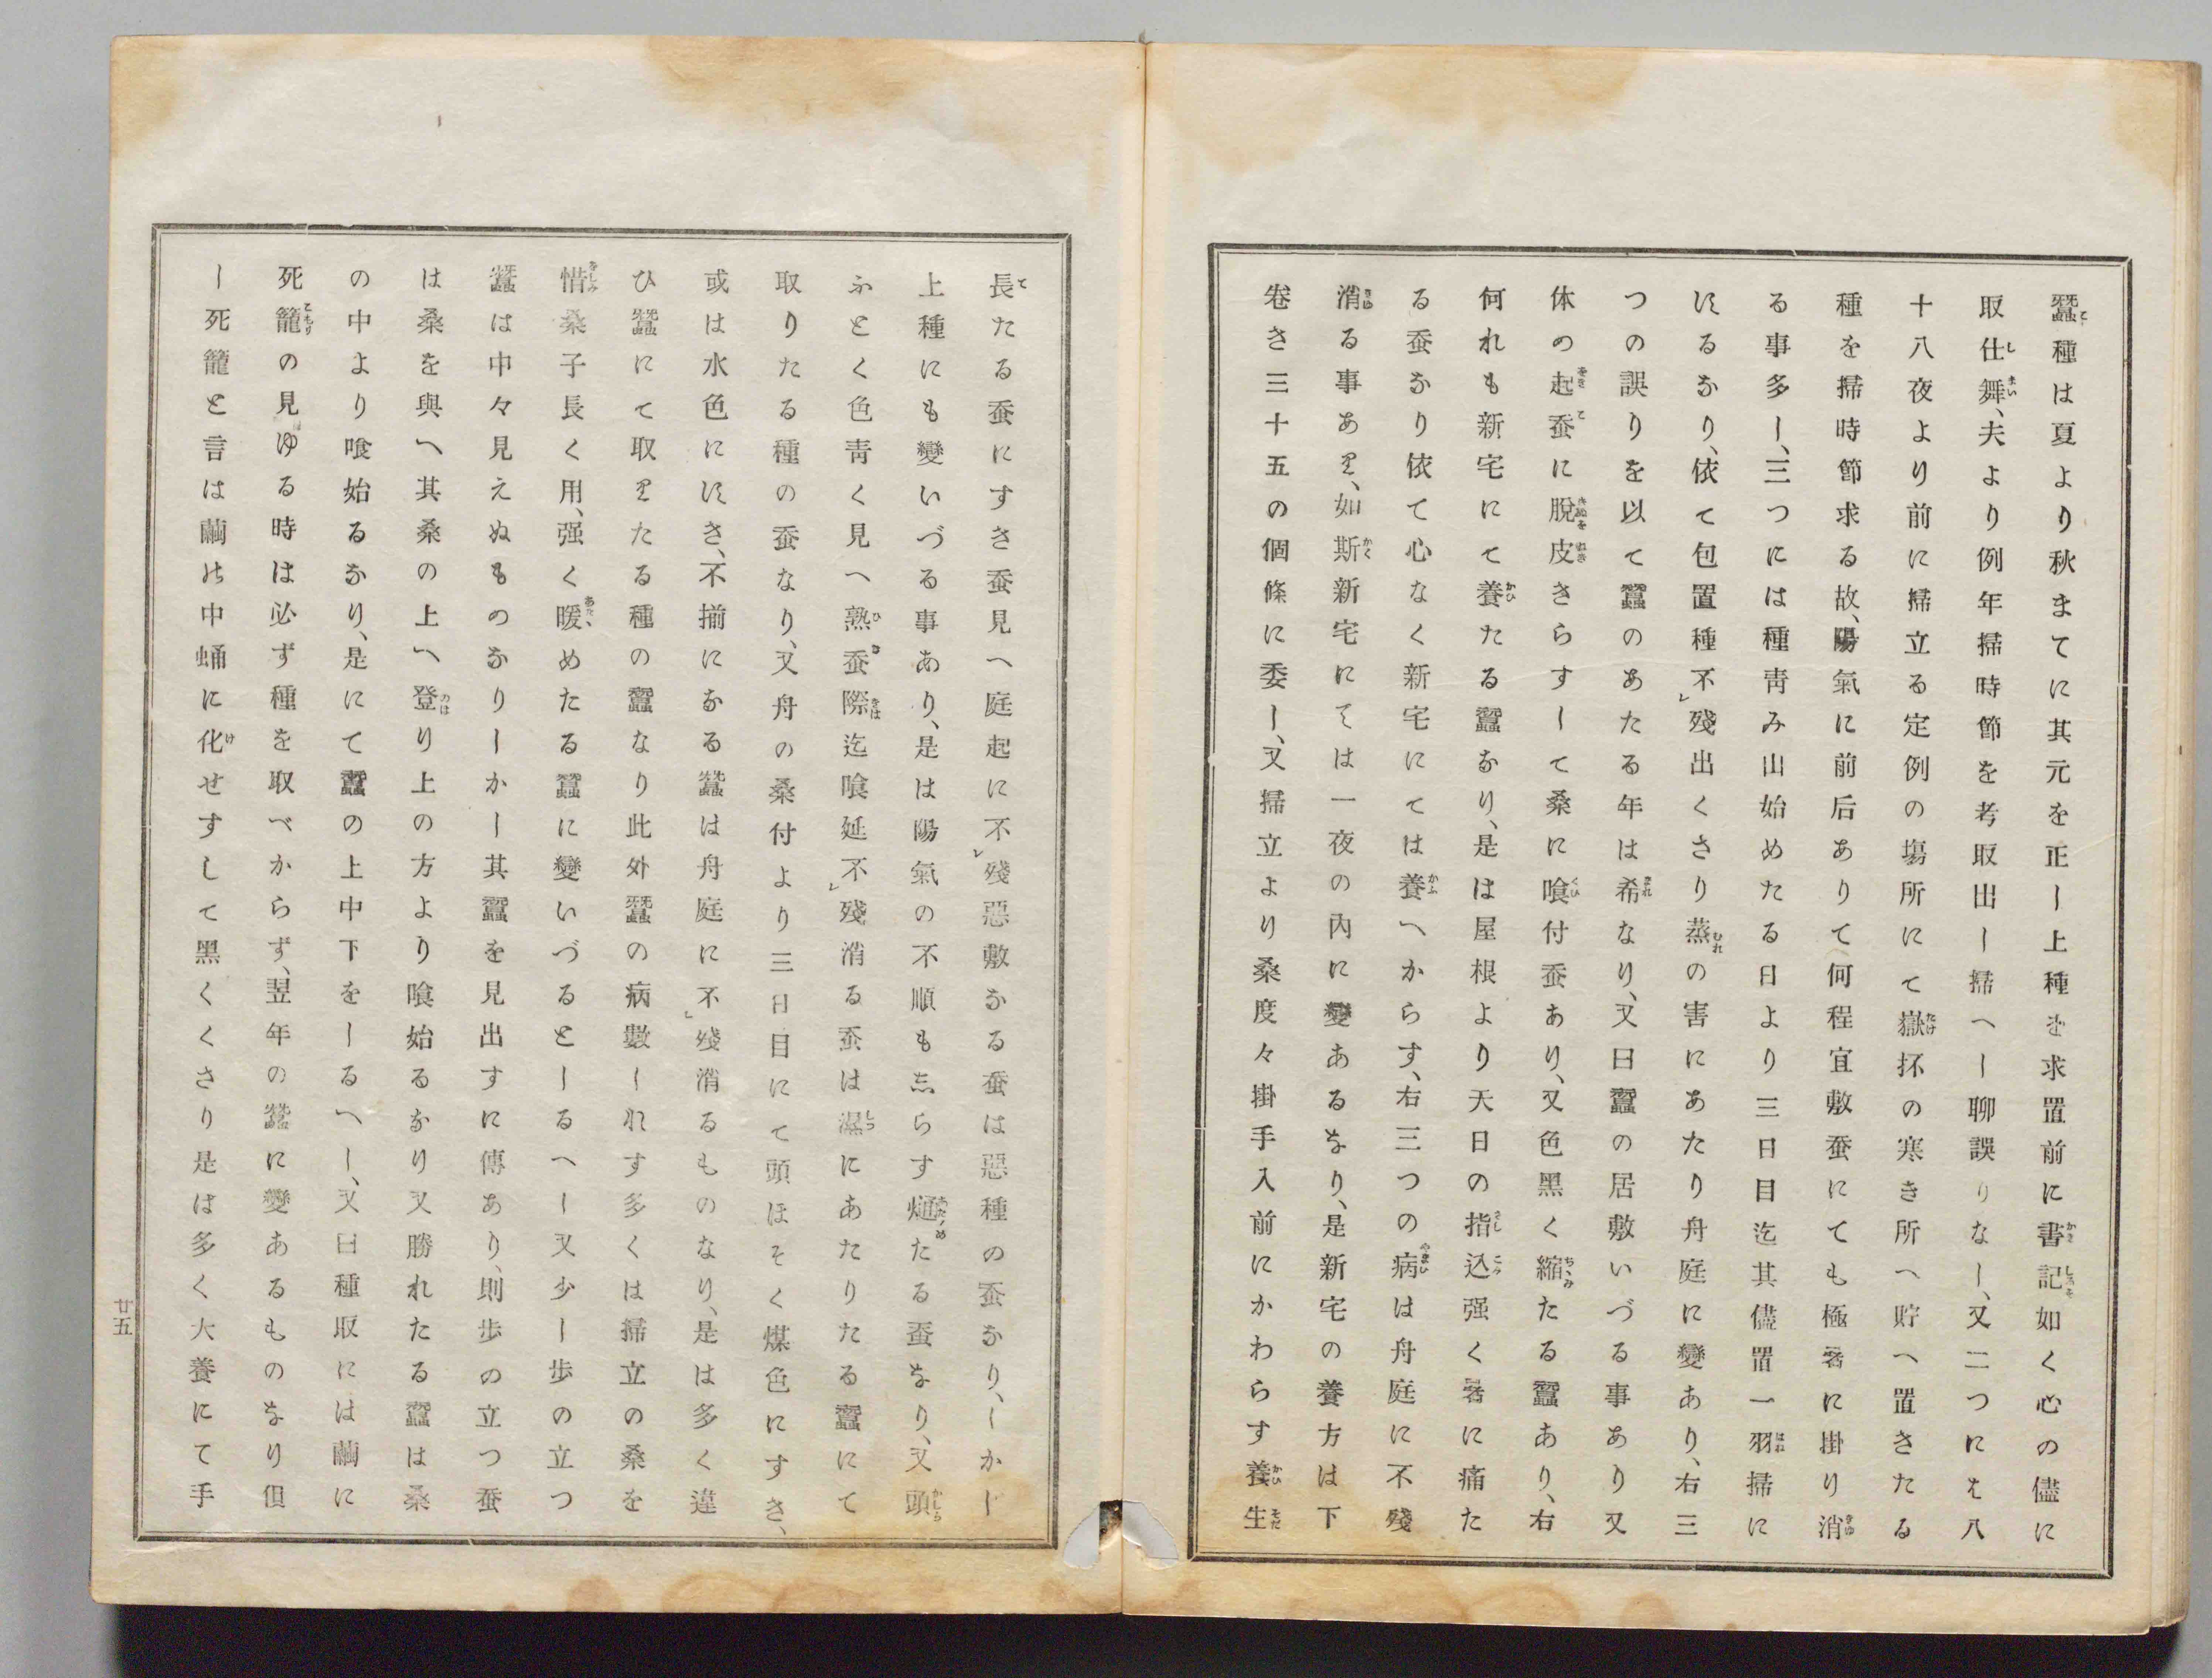 蠶種は夏より秋まてに其元を正し上種を求置前に書記如く心の儘に
取仕舞、夫より例年掃時節を考取出し掃へし聊誤りなし、又二つにも八
十八夜より前に掃立る定例の塲所にて嶽抔の寒き所へ貯へ置きたる
種を掃時節求る故、陽氣に前后ありて何程宜敷蚕にても極暑に掛り消
る事多し、三つには種靑み山始めたる日より三日目迄其儘置一羽掃に
にるなり、依て包置種不㆑殘出くさり蒸の害にあたり舟庭に變あり、右三
つの誤りを以て蠶のあたる年は希なり、又曰蠶の居敷いづる事あり又
休の起蚕に脫皮きらすして桑に喰付蚕あり、又色黑く縮たる蠶あり、右
何れも新宅にて養たる蠶なり、是は屋根より天日の指込强く暑に痛た
る蚕なり依て心なく新宅にては養へからす、右三つの病は舟庭に不殘
消る事あり、如斯新宅にては一夜の內に變あるなり、是新宅の養方は下
卷き三十五の個條に委し、又掃立より桑度々掛手入前にかわらす養生
長たる蚕にすき蚕見へ庭起に不㆑殘惡敷なる蚕は惡種の蚕なり、しかし
上種にも變いづる事あり、是は陽氣の不順もしらす𤏐たる蚕なり、又頭
ふとく色靑く見へ熟蚕際迄喰延不㆑殘消る蚕は濕にあたりたる蠶にて
取りたる種の蚕なり、又舟の桑付より三日目にて頭ほそく煤色にすき、
或は水色にすき、不揃になる蠶は舟庭に不㆑殘消るものなり、是は多く違
ひ蠶にて取りたる種の蠶なり此外蠶の病數しれす多くは掃立の桑を
惜桑子長く用、强く暖めたる蠶に變いづるとしるへし又少し步の立つ
蠶は中々見えぬものなりしかし其蠶を見出すに傳あり、則步の立つ蚕
は桑を與へ其桑の上へ登り上の方より喰始るなり又勝れたる蠶は桑
の中より喰始るなり、是にて蠶の上中下をしるへし、又曰種取には繭に
死籠の見ゆる時は必ず種を取べからず、翌年の蠶に變あるものなり但
し死籠と言は繭の中蛹に化せすして黑くくさり是は多く大養にて手
廿五